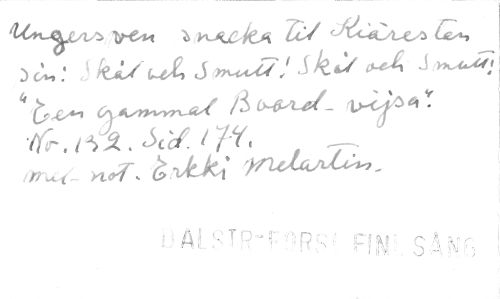 Ungersven snacka til Kiäresten
sin: Skål och Smutt! Skål och Smutt!
"Een gammal Boord-vijsa".
No. 132. Sid. 174.
mel-not. Erkki Melartin.
DALSTR-FORS! FINL SÅNG